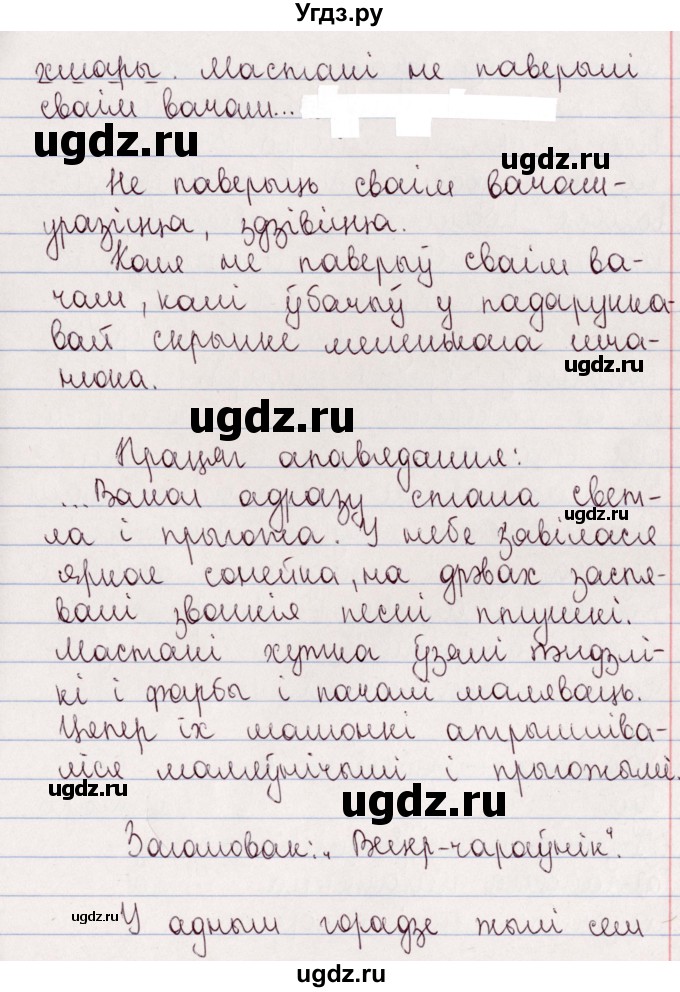 Угдз.ру
хмары. Мастакі не паверылі
сваім вачам...
ugdz.ru
ugdz.ru
Не паверыць сваім вачам-
уразіцца, здзівіцца.
Коля не паверыў сваім ва-
чам, калі ўбачыў у падарунка-
вай скрынке маленькага шча-
нюка.
ugdz.ru
ugdz.ru
Працяг апавядання:
...Вакол адразу стала свет-
ла і прыгожа. У небе з'явілася
ugdz.ru
яркае сонейка, на дрэвах заспя-
валі звонкія песні птушкі.
Мастакі хутка ўзялі пэндзлі-
кі і фарбы і пачалі маляваць.
Цяпер іх малюнкі атрымліва-
ліся маляўнічымі і прыгожымі.
ugdz.ru
ugdz.ru
Загаловак: „Вецер-чараўнік“.
ugdz.ru
У адным горадзе жылі сем
ugdz.ru